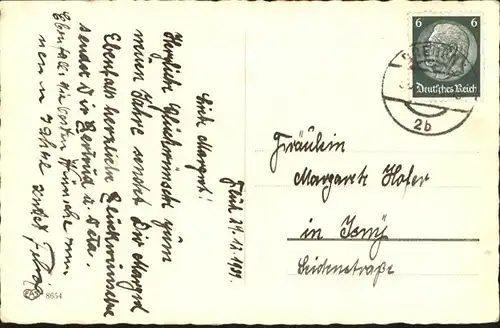 29.12.1939.
Lieb Margret!
Herzliche Glückwünsche zum
neuen Jahre sendet Dir Margret
Ebenfalls herzliche Glückwünsche
sendet Dir Gertrud u. Tante.
Ebenfalls die besten Wünsche zum
neuen Jahre sendet
8654
6 6
Deutsches Reich
2b
Fräulein
Margarete Hofer
in Isny
Seidenstraße